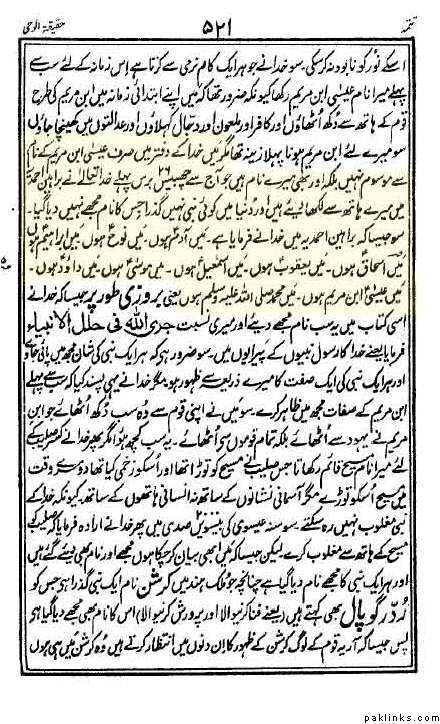 تتمہ ۵۲۱ حقیقۃ الوحی
اسکے نور کو نابود نہ کر سکی۔ سو خدا نے جو ہر ایک کام نرمی سے کرتا ہے اِس زمانہ کے لئے سب سے
پہلے میرا نام عیسیٰ ابن مریم رکھا کیونکہ ضرور تھا کہ میں اپنے ابتدائی زمانہ میں ابن مریم کی طرح
قوم کے ہاتھ سے دُکھ اُٹھاؤں اور کافر اور ملعون اور دجال کہلاؤں اور عدالتوں میں کھینچا جاؤں
سو میرے لئے ابن مریم ہونا پہلا زینہ تھا مگر میں خدا کے دفتر میں صرف عیسیٰ ابن مریم کے نام
سے موسوم نہیں بلکہ اور بھی میرے نام ہیں جو آج سے چھبیس ۲۶ برس پہلے خدا تعالیٰ نے براہین احمدیہ
میں میرے ہاتھ سے لکھا دیئے ہیں اور دنیا میں کوئی نبی نہیں گذرا جس کا نام مجھے نہیں دیا گیا۔
سو جیسا کہ براہین احمدیہ میں خدا نے فرمایا ہے۔ میں آدم ہوں۔ میں نوح ہوں۔ میں ابراہیم ہوں
میں اسحاق ہوں۔ میں یعقوب ہوں۔ میں اسمٰعیل ہوں۔ میں موسیٰ ہوں۔ میں داؤد ہوں۔
میں عیسیٰ ابن مریم ہوں۔ میں محمد صلی اللہ علیہ وسلم ہوں یعنی بروزی طور پر جیسا کہ خدا نے
اسی کتاب میں یہ سب نام مجھے دیئے اور میری نسبت جری اللہ فی حلل الانبیاء
فرمایا یعنے خدا کا رسول نبیوں کے پیرایوں میں۔ سو ضرور ہے کہ ہر ایک نبی کی شان مجھ میں پائی جاوے
اور ہر ایک نبی کی ایک صفت کا میرے ذریعہ سے ظہور ہو مگر خدا نے یہی پسند کیا کہ سب سے پہلے
ابن مریم کے صفات مجھ میں ظاہر کرے۔ سو میں نے اپنی قوم سے وہ سب دُکھ اُٹھائے جو ابن
مریم نے یہود سے اُٹھائے بلکہ تمام قوموں سے اُٹھائے۔ یہ سب کچھ ہوا مگر پھر خدا نے کسر صلیب کے
لئے میرا نام مسیح قائم رکھا تا جس صلیب نے مسیح کو توڑا تھا اور اُسکو زخمی کیا تھا دوسرے وقت
میں مسیح اُسکو توڑے مگر آسمانی نشانوں کے ساتھ نہ انسانی ہاتھوں کے ساتھ۔ کیونکہ خدا کے
نبی مغلوب نہیں رہ سکتے۔ سو سنہ عیسوی کی بیسویں صدی میں پھر خدا نے ارادہ فرمایا کہ صلیب کو
مسیح کے ہاتھ سے مغلوب کرے لیکن جیسا کہ میں ابھی بیان کر چکا ہوں مجھے اور نام بھی دیئے گئے ہیں
اور ہر ایک نبی کا مجھے نام دیا گیا ہے چنانچہ جو ملک ہند میں کرشن نام ایک نبی گذرا ہے جس کو
رُدّر گوپال بھی کہتے ہیں (یعنے فنا کرنیوالا اور پرورش کرنیوالا) اس کا نام بھی مجھے دیا گیا ہے
پس جیسا کہ آریہ قوم کے لوگ کرشن کے ظہور کا ان دنوں میں انتظار کرتے ہیں وہ کرشن میں ہی ہوں
paklinks.com